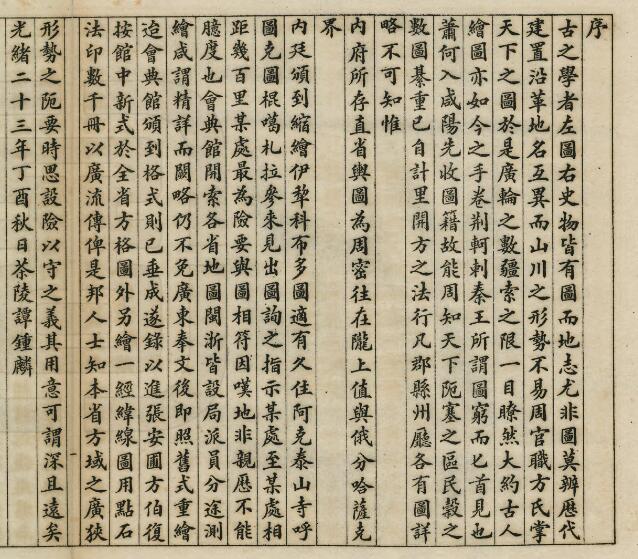 序
古之學者左圖右史物皆有圖而地志尤非圖莫辦歷代
建置沿革地名互異而山川之形勢不易周官職方氏掌
天下之圖於是廣輪之數疆索之限一目瞭然大約古人
繪圖亦如今之手卷荆軻刺秦王所謂圖窮而匕首見也
蕭何入咸陽先收圖籍故能周知天下阨塞之區民穀之
數圖綦重已自計里開方之法行凡郡縣州廳各有圖詳
略不可知惟
內府所存直省輿圖為周密往在隴上值與俄分哈薩克
界
內廷頒到縮繪伊犂科布多圖適有久住阿克泰山寺呼
圖克圖棍噶札拉參來見出圖詢之指示某處至某處相
距幾百里某處最為險要與圖相符因嘆地非親歷不能
臆度也會典館開索各省地圖閩浙皆設局派員分途測
繪咸謂精詳而闕略仍不免廣東奉文後即照舊式重繪
迨會典館頒到格式則已垂成遂錄以進張安圃方伯復
按館中新式於全省方格圖外另繪一經緯線圖用點石
法印數千冊以廣流傳俾是邦人士知本省方域之廣狹
形勢之阨要時思設險以守之義其用意可謂深且遠矣
光緒二十三年丁酉秋日茶陵譚鍾麟